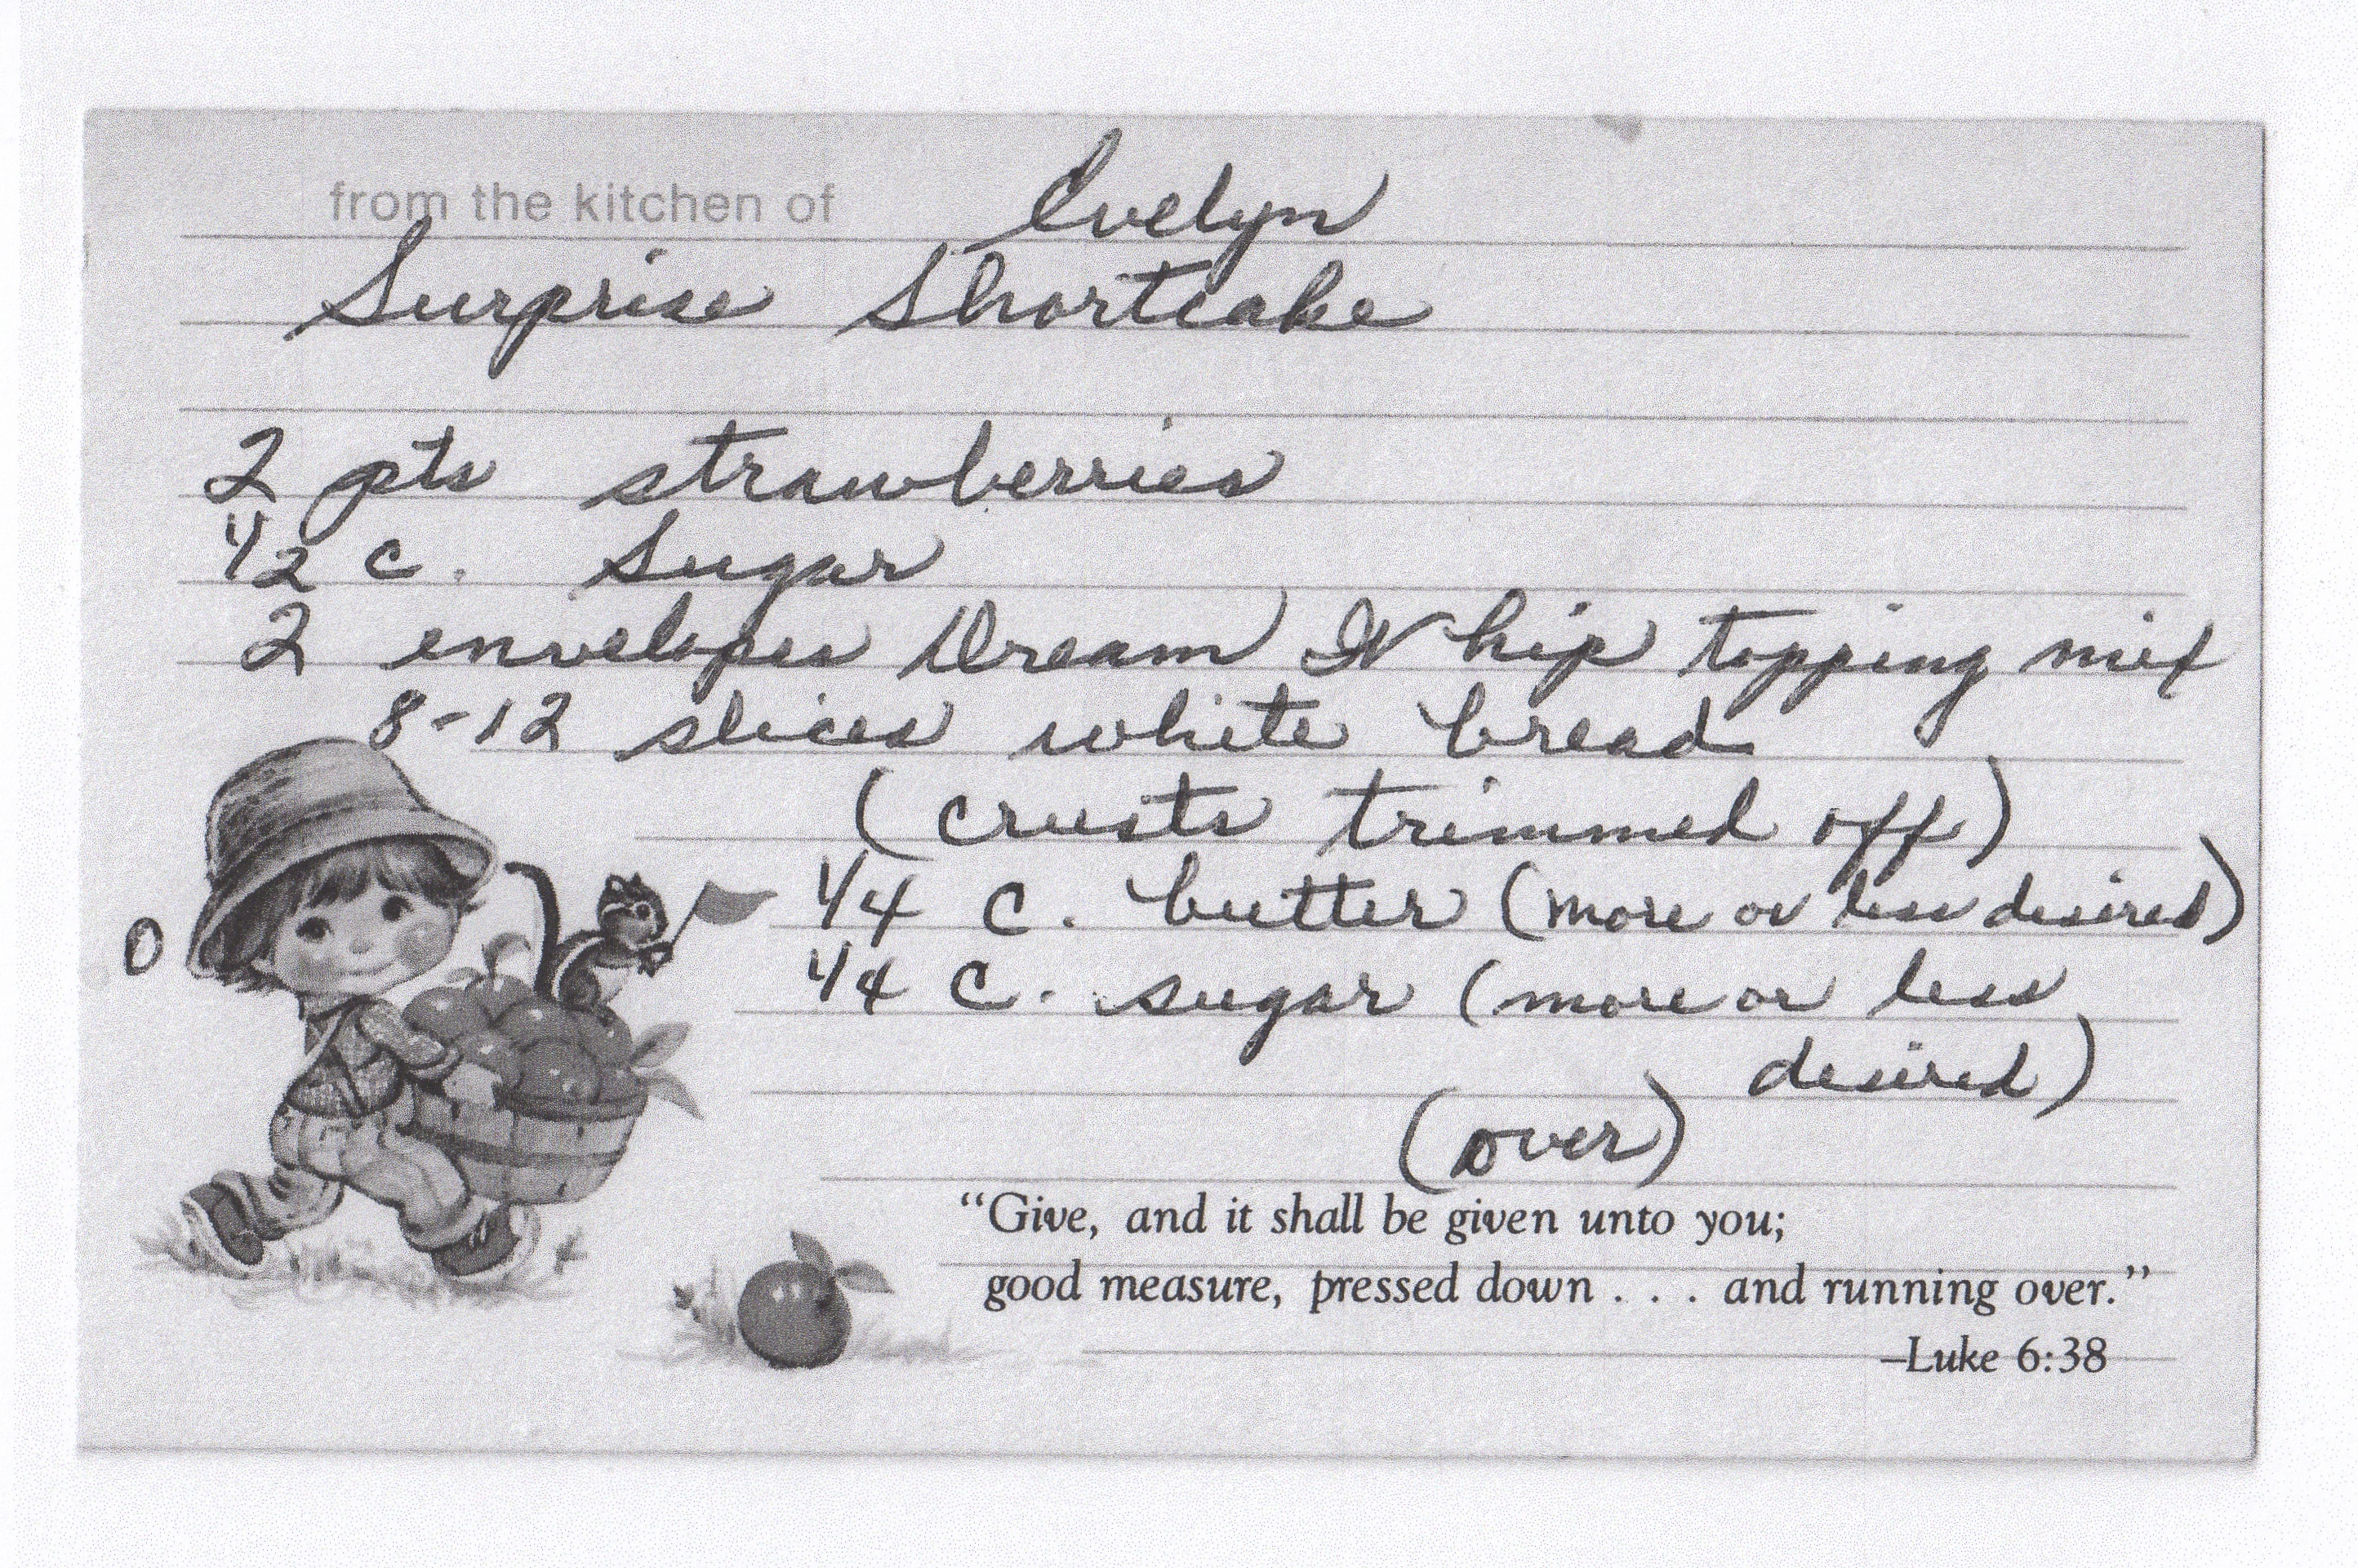 from the kitchen of Evelyn
Surprise Shortcake
2 pts strawberries
1/2 c. sugar
2 envelopes Dream Whip topping mix
8-12 slices white bread
(crusts trimmed off)
1/4 c. butter (more or less desired)
1/4 c. sugar (more or less
desired)
(over)
"Give, and it shall be given unto you;
good measure, pressed down . . . and running over."
–Luke 6:38